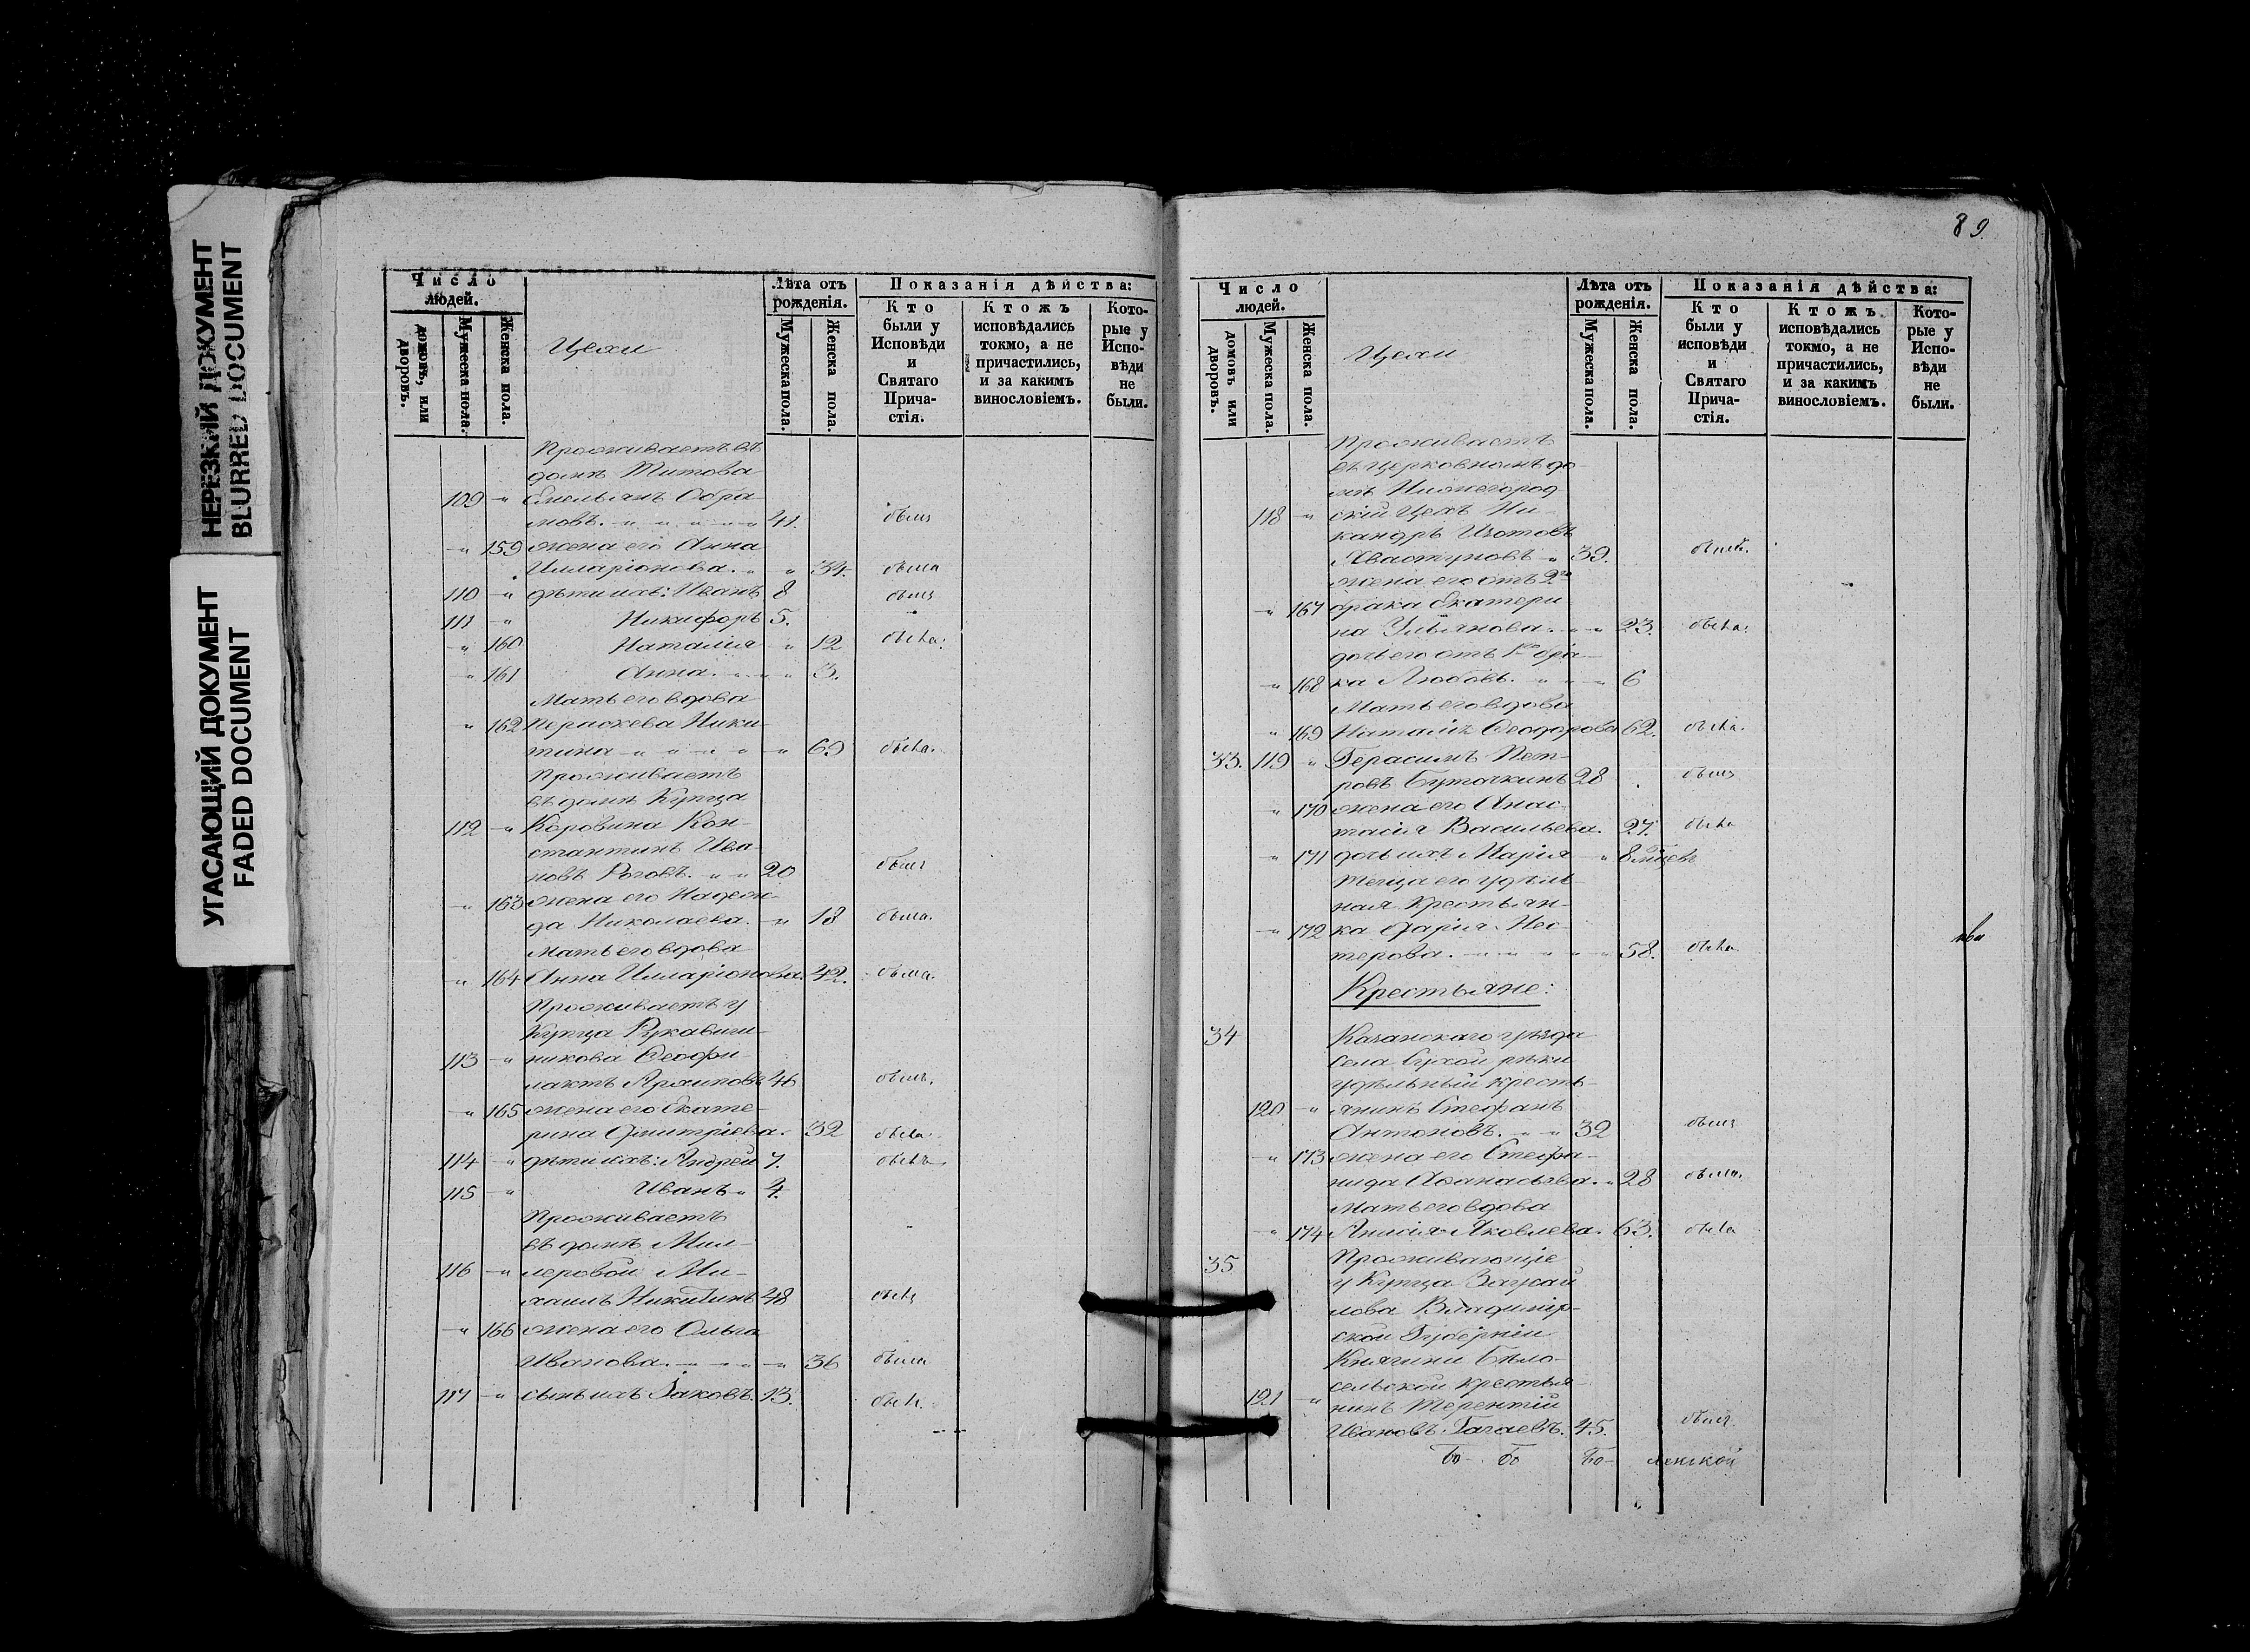 НЕРЕЗКИЙ ДОКУМЕНТ
BLURRED DOCUMENT
УГАСАЮЩИЙ ДОКУМЕНТ
FADED DOCUMENT
Число людей.
домовъ, или дворовъ.
Мужеска пола.
Женска пола.
Цехи
Лѣта отъ рожденія.
Мужеска пола.
Женска пола.
Показанія дѣйства:
Кто были у Исповѣди и Святаго Прича-стія.
Ктожъ исповѣдались токмо, а не причастились, и за какимъ винословіемъ.
Кото-рые у Испо-вѣди не были.
Проживаетъ въ
домѣ Титова
109 " Емельянъ Обра-
мовъ. " " " " " 41. былъ
" 159 жена его Анна
Илларіонова. " " 34. была
110 " дѣти ихъ: Иванъ 8 былъ
111 " Никифоръ 5.
" 160 Наталія " 12 была.
" 161 Анна. " " " 3.
Мать его вдова
" 162 Параскева Ники-
тина " " " " " 69 была.
Проживаетъ
въ домѣ Купца
112 " Коровина Кон-
стантинъ Ива-
новъ Роговъ. " " 20 былъ
" 163 жена его Надеж-
да Николаева. " 18 была.
Мать его вдова
" 164 Анна Илларіонова. 42. была.
Проживаетъ у
Купца Рукавиш-
113 " никова Феофи-
лактъ Архиповъ 46 былъ.
" 165 жена его Екате-
рина Дмитріева. 32 была.
114 " дѣти ихъ: Андрей 7. былъ
115 " Иванъ " 4.
Проживаетъ
въ домѣ Мил-
116 " леровой Ми-
хаилъ Никитинъ 48 былъ
" 166 жена его Ольга
Иванова. " " " " 36 была
117 " сынъ ихъ Іаковъ. 13. былъ.
89.
Число людей.
домовъ или дворовъ.
Мужеска пола.
Женска пола.
Цехи
Лѣта отъ рожденія.
Мужеска пола.
Женска пола.
Показанія дѣйства:
Кто были у исповѣди и Святаго Прича-стія.
Ктожъ исповѣдались токмо, а не причастились, и за какимъ винословіемъ.
Кото-рые у Испо-вѣди не были.
Проживаетъ
въ церковномъ до-
мѣ Нижегород
118 " скій Цехъ Ни-
кандръ Изотовъ
Хвастуновъ " 39. былъ.
жена его отъ 2го
" 167 брака Екатери
на Ульянова. " " 23. была.
дочь его отъ 1го бра-
" 168 ка Любовь. " " " 6
Мать его вдова
" 169 Наталія Феодорова 62. была.
33. 119 " Герасимъ Пет-
ровъ Буточкинъ 28 былъ
" 170 жена его Анас-
тасія Васильева. 27. была
" 171 дочь ихъ Марія " 8 мѣсцевъ
Теща его удѣль-
ная крестьян-
" 172 ка Дарія Нес-
терова. " " " " " 58. была.
Крестьяне:
34 Казанскаго уѣзда
села Сухой рѣки
удѣльный кресть-
120 " янинъ Стефанъ
Антоновъ. " " 32 былъ
" 173 жена его Стефа-
нида Аѳанасьева. " 28 была.
Мать его вдова
" 174 Анисія Яковлева. 63. была
35 Проживающіе
у Купца
Владимір-
ской Губерніи
Княгини Бѣло-
сельской крестья-
121 " нинъ Терентій
Ивановъ Гагаевъ. 45. былъ.